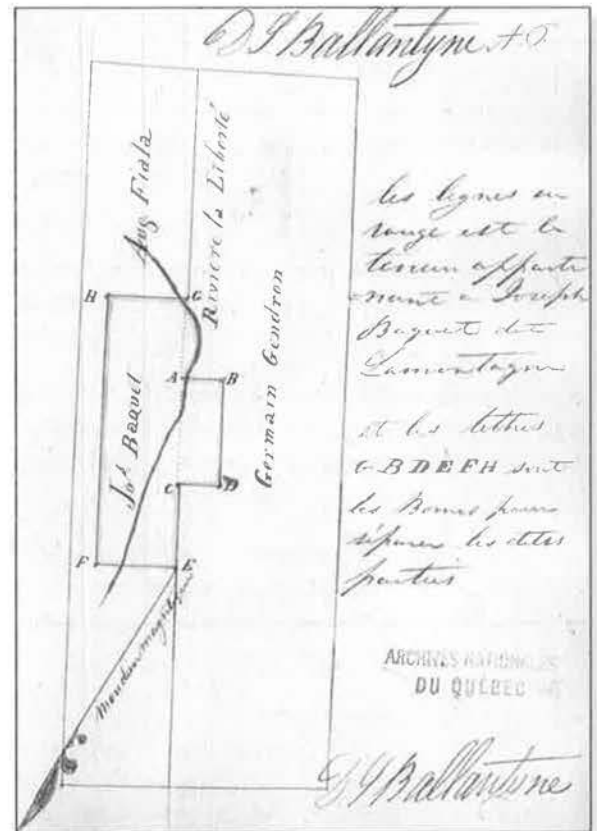 D J Ballantyne A.G.
Aug Fiala
Rivière la Liberté
Germain Gendron
Jos Baquet
H
G
A
B
C
D
F
E
Meridien magnétique
les lignes en
rouge est le
terrain apparte
nant a Joseph
Baquet dit
Lamontagne
et les lettres
G B D E F H sont
les Bornes pour
séparer les dites
parties
ARCHIVES NATIONALES
DU QUÉBEC
D J Ballantyne